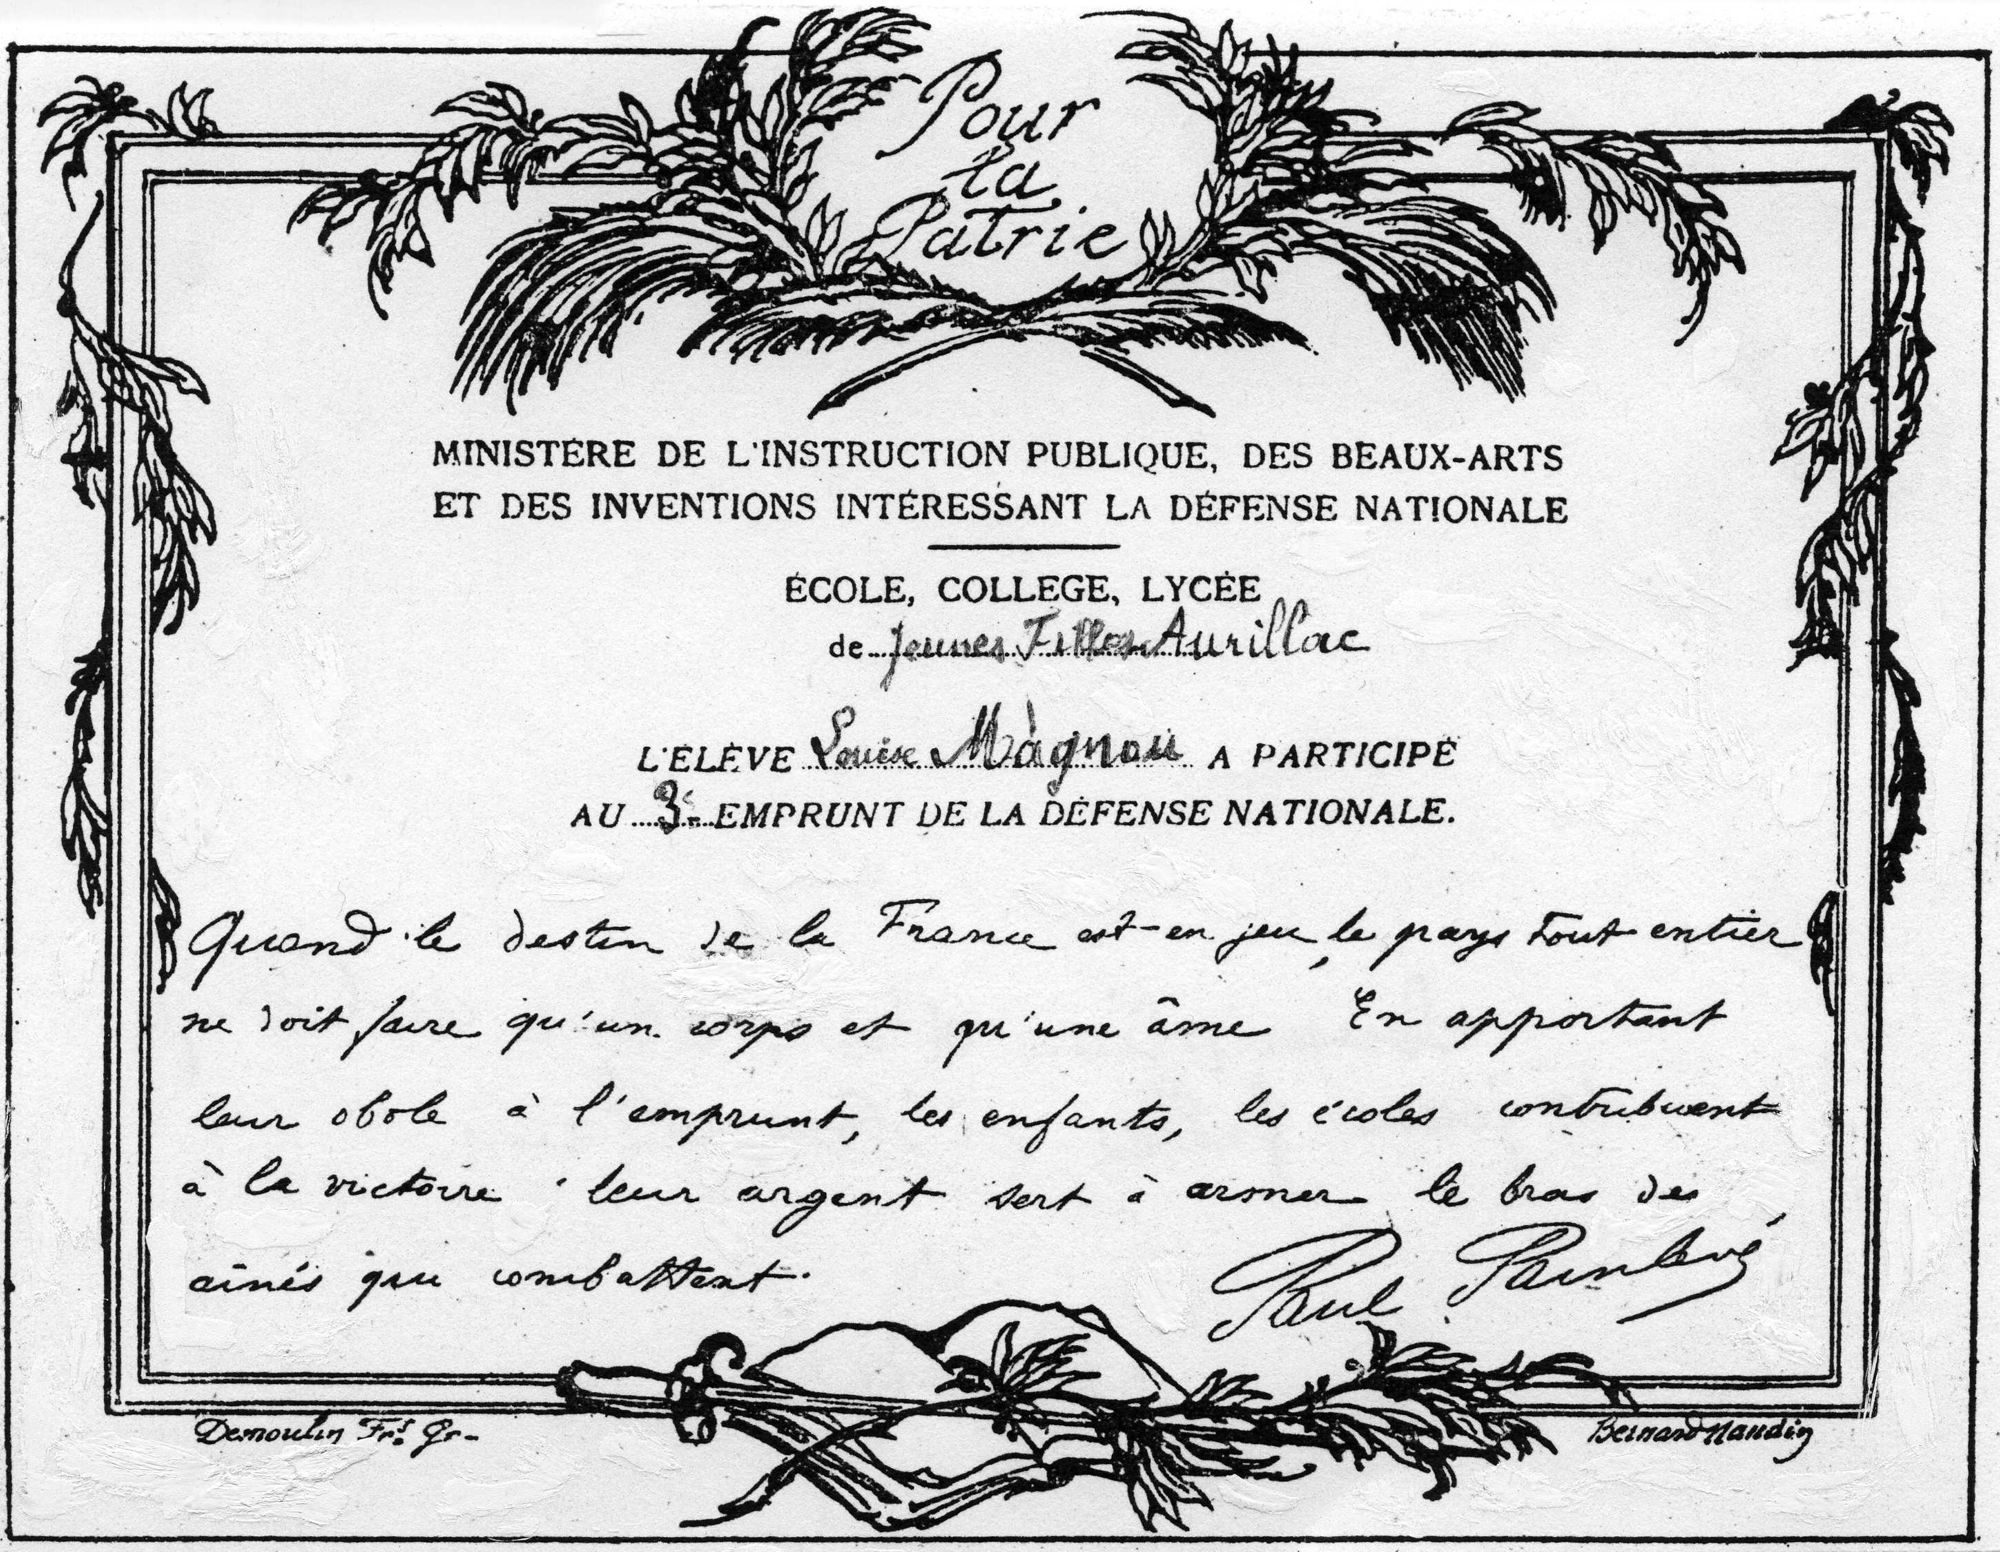 Pour
la
Patrie
MINISTÈRE DE L'INSTRUCTION PUBLIQUE, DES BEAUX-ARTS
ET DES INVENTIONS INTÉRESSANT LA DÉFENSE NATIONALE
ÉCOLE, COLLEGE, LYCÉE
de Jeunes Filles Aurillac
L'ÉLÈVE Louise Magnou A PARTICIPÉ
AU 3e EMPRUNT DE LA DÉFENSE NATIONALE.
Quand le destin de la France est en jeu, le pays tout entier
ne doit faire qu'un corps et qu'une âme En apportant
leur obole à l'emprunt, les enfants, les écoles contribuent
à la victoire : leur argent sert à armer le bras des
aînés qui combattent.
Paul Painlevé
Demoulin Frs Gr-
Bernard Naudin